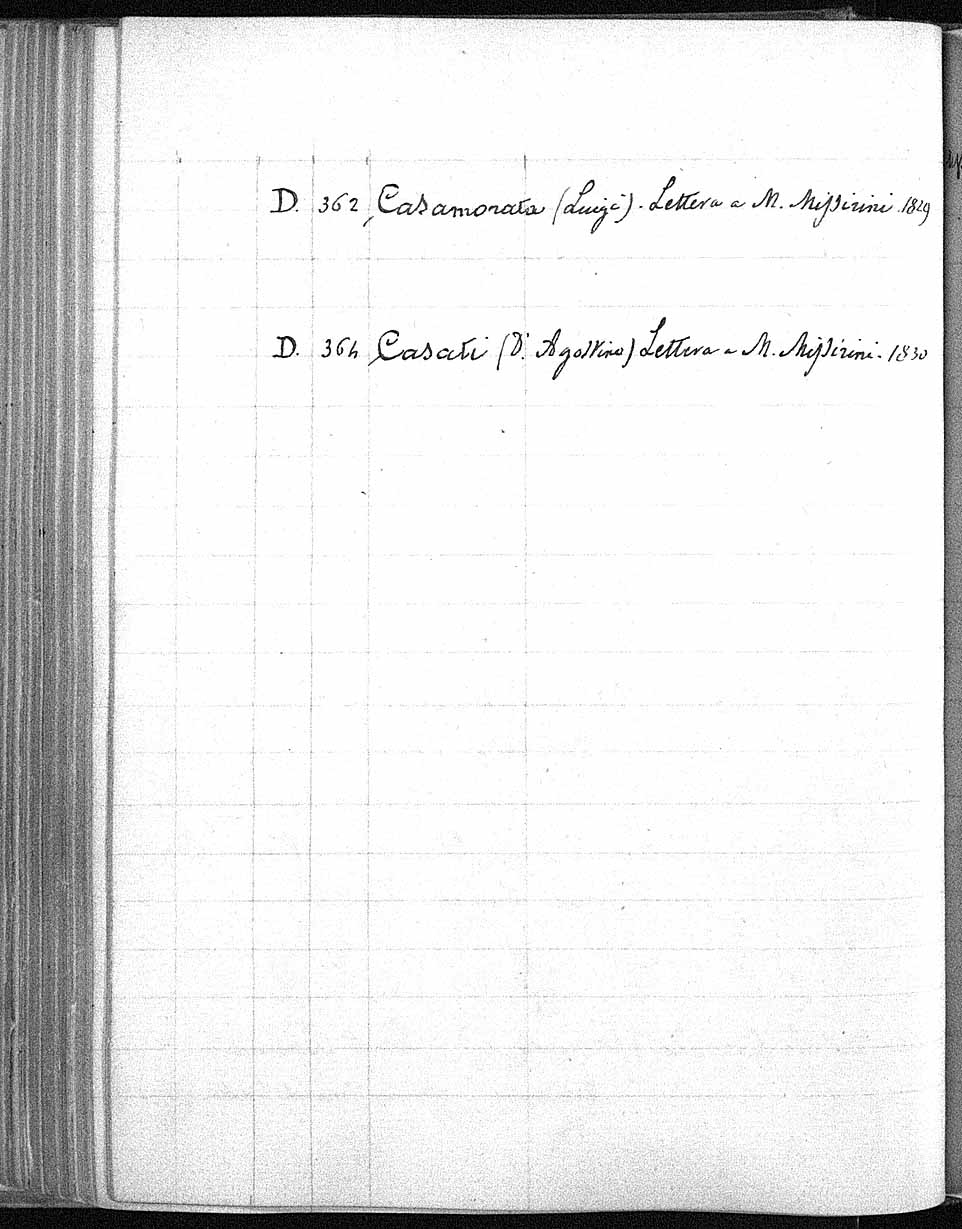 D. 362 Casamorata (Luigi). Lettera a M. Missirini. 1829
D. 364 Casati (D. Agostino) Lettera a M. Missirini. 1830